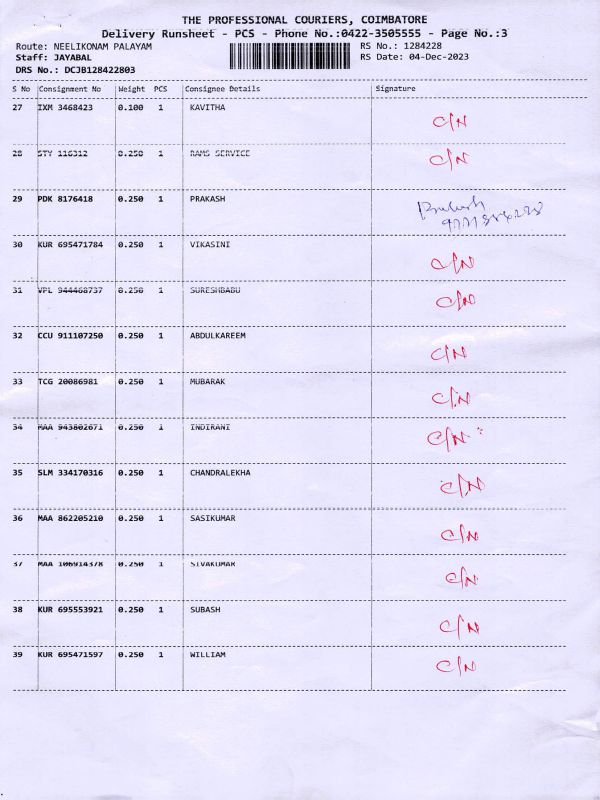 THE PROFESSIONAL COURIERS, COIMBATORE
Delivery Runsheet - PCS - Phone No.:0422-3505555 - Page No.:3
Route: NEELIKONAM PALAYAM RS No.: 1284228
Staff: JAYABAL RS Date: 04-Dec-2023
DRS No.: DCJB128422803
S No Consignment No Weight PCS Consignee Details Signature
27 IXM 3468423 0.100 1 KAVITHA C/N
28 STY 116312 0.250 1 RAMS SERVICE C/N
29 PDK 8176418 0.250 1 PRAKASH Prakash
30 KUR 695471784 0.250 1 VIKASINI C/N
31 VPL 944468737 0.250 1 SURESHBABU C/N
32 CCU 911107250 0.250 1 ABDULKAREEM C/N
33 TCG 20086981 0.250 1 MUBARAK C/N
34 MAA 943802671 0.250 1 INDIRANI C/N
35 SLM 334170316 0.250 1 CHANDRALEKHA C/N
36 MAA 862205210 0.250 1 SASIKUMAR C/N
37 MAA 106914378 0.250 1 SIVAKUMAR C/N
38 KUR 695553921 0.250 1 SUBASH C/N
39 KUR 695471597 0.250 1 WILLIAM C/N